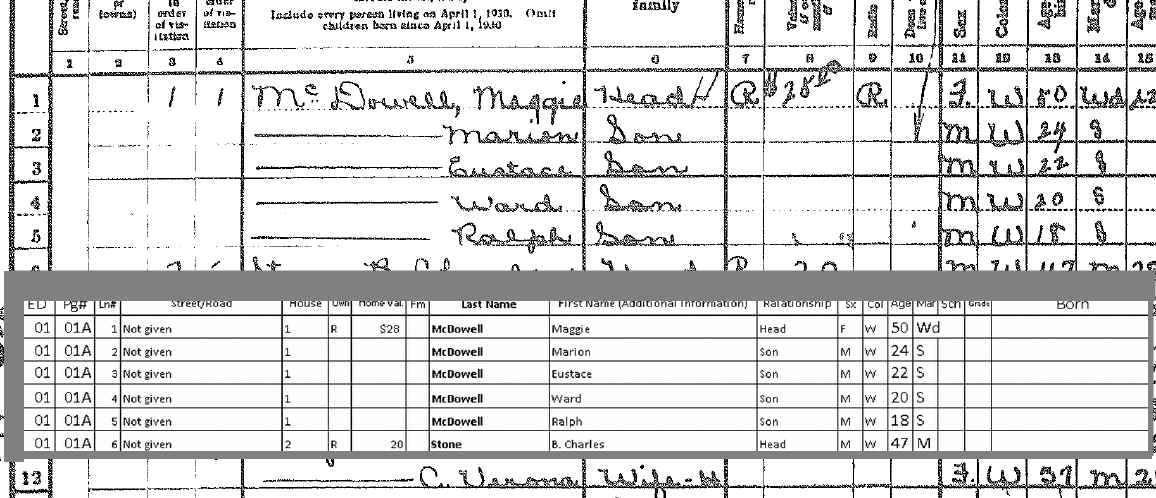 pr
towns)
in
order
of vis-
itation
order
of vis-
itation
Include every person living on April 1, 1930. Omit
children born since April 1, 1930
family
Radio
Sex
1 2 3 4 5 6 7 8 9 10 11 12 13 14 15
1 1 1 McDowell, Maggie Head H R R F W 50 Wd
2 Marion Son M W 24 S
3 Eustace Son M W 22 S
4 Ward Son M W 20 S
5 Ralph Son M W 18 S
ED Pg# Ln# Street/Road House Own Home Val. Fm Last Name First Name (Additional Information) Relationship Sx Col Age Mar Sch Grade Born
01 01A 1 Not given 1 R $28 McDowell Maggie Head F W 50 Wd
01 01A 2 Not given 1 McDowell Marion Son M W 24 S
01 01A 3 Not given 1 McDowell Eustace Son M W 22 S
01 01A 4 Not given 1 McDowell Ward Son M W 20 S
01 01A 5 Not given 1 McDowell Ralph Son M W 18 S
01 01A 6 Not given 2 R 20 Stone B. Charles Head M W 47 M
13 C. Verona Wife-H F W 37 M